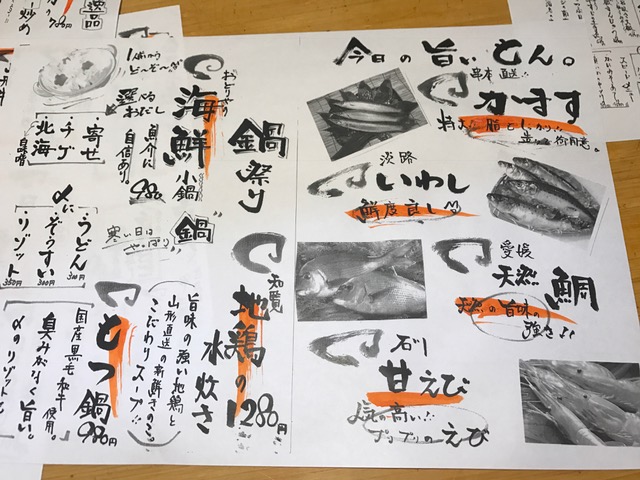 今日の旨いもん。
串本直送!!
かます
淡路
いわし
鮮度良し
愛媛
天然 鯛
天然の旨味の
強さ!!
石川
甘えび
人気の高い!!
プリプリのえび
鍋祭り
おひとりさま
海鮮
小鍋
1人前から
ど〜ぞ〜
選べる
おだし
魚介に
自信あり
980
・寄せ
・チゲ
・北海
味噌
寒い日は
やっぱり
"鍋"
〆に
・うどん 300円
・ぞうすい 300円
・リゾット 350円
知覧
地鶏の
水炊き
1280円
旨味の強い地鶏と
山形直送の新鮮きのこ
こだわりスープ!!
もつ鍋
980円
国産黒毛和牛
使用。
臭みがなく旨い。
〆のリゾット
逸品
780円